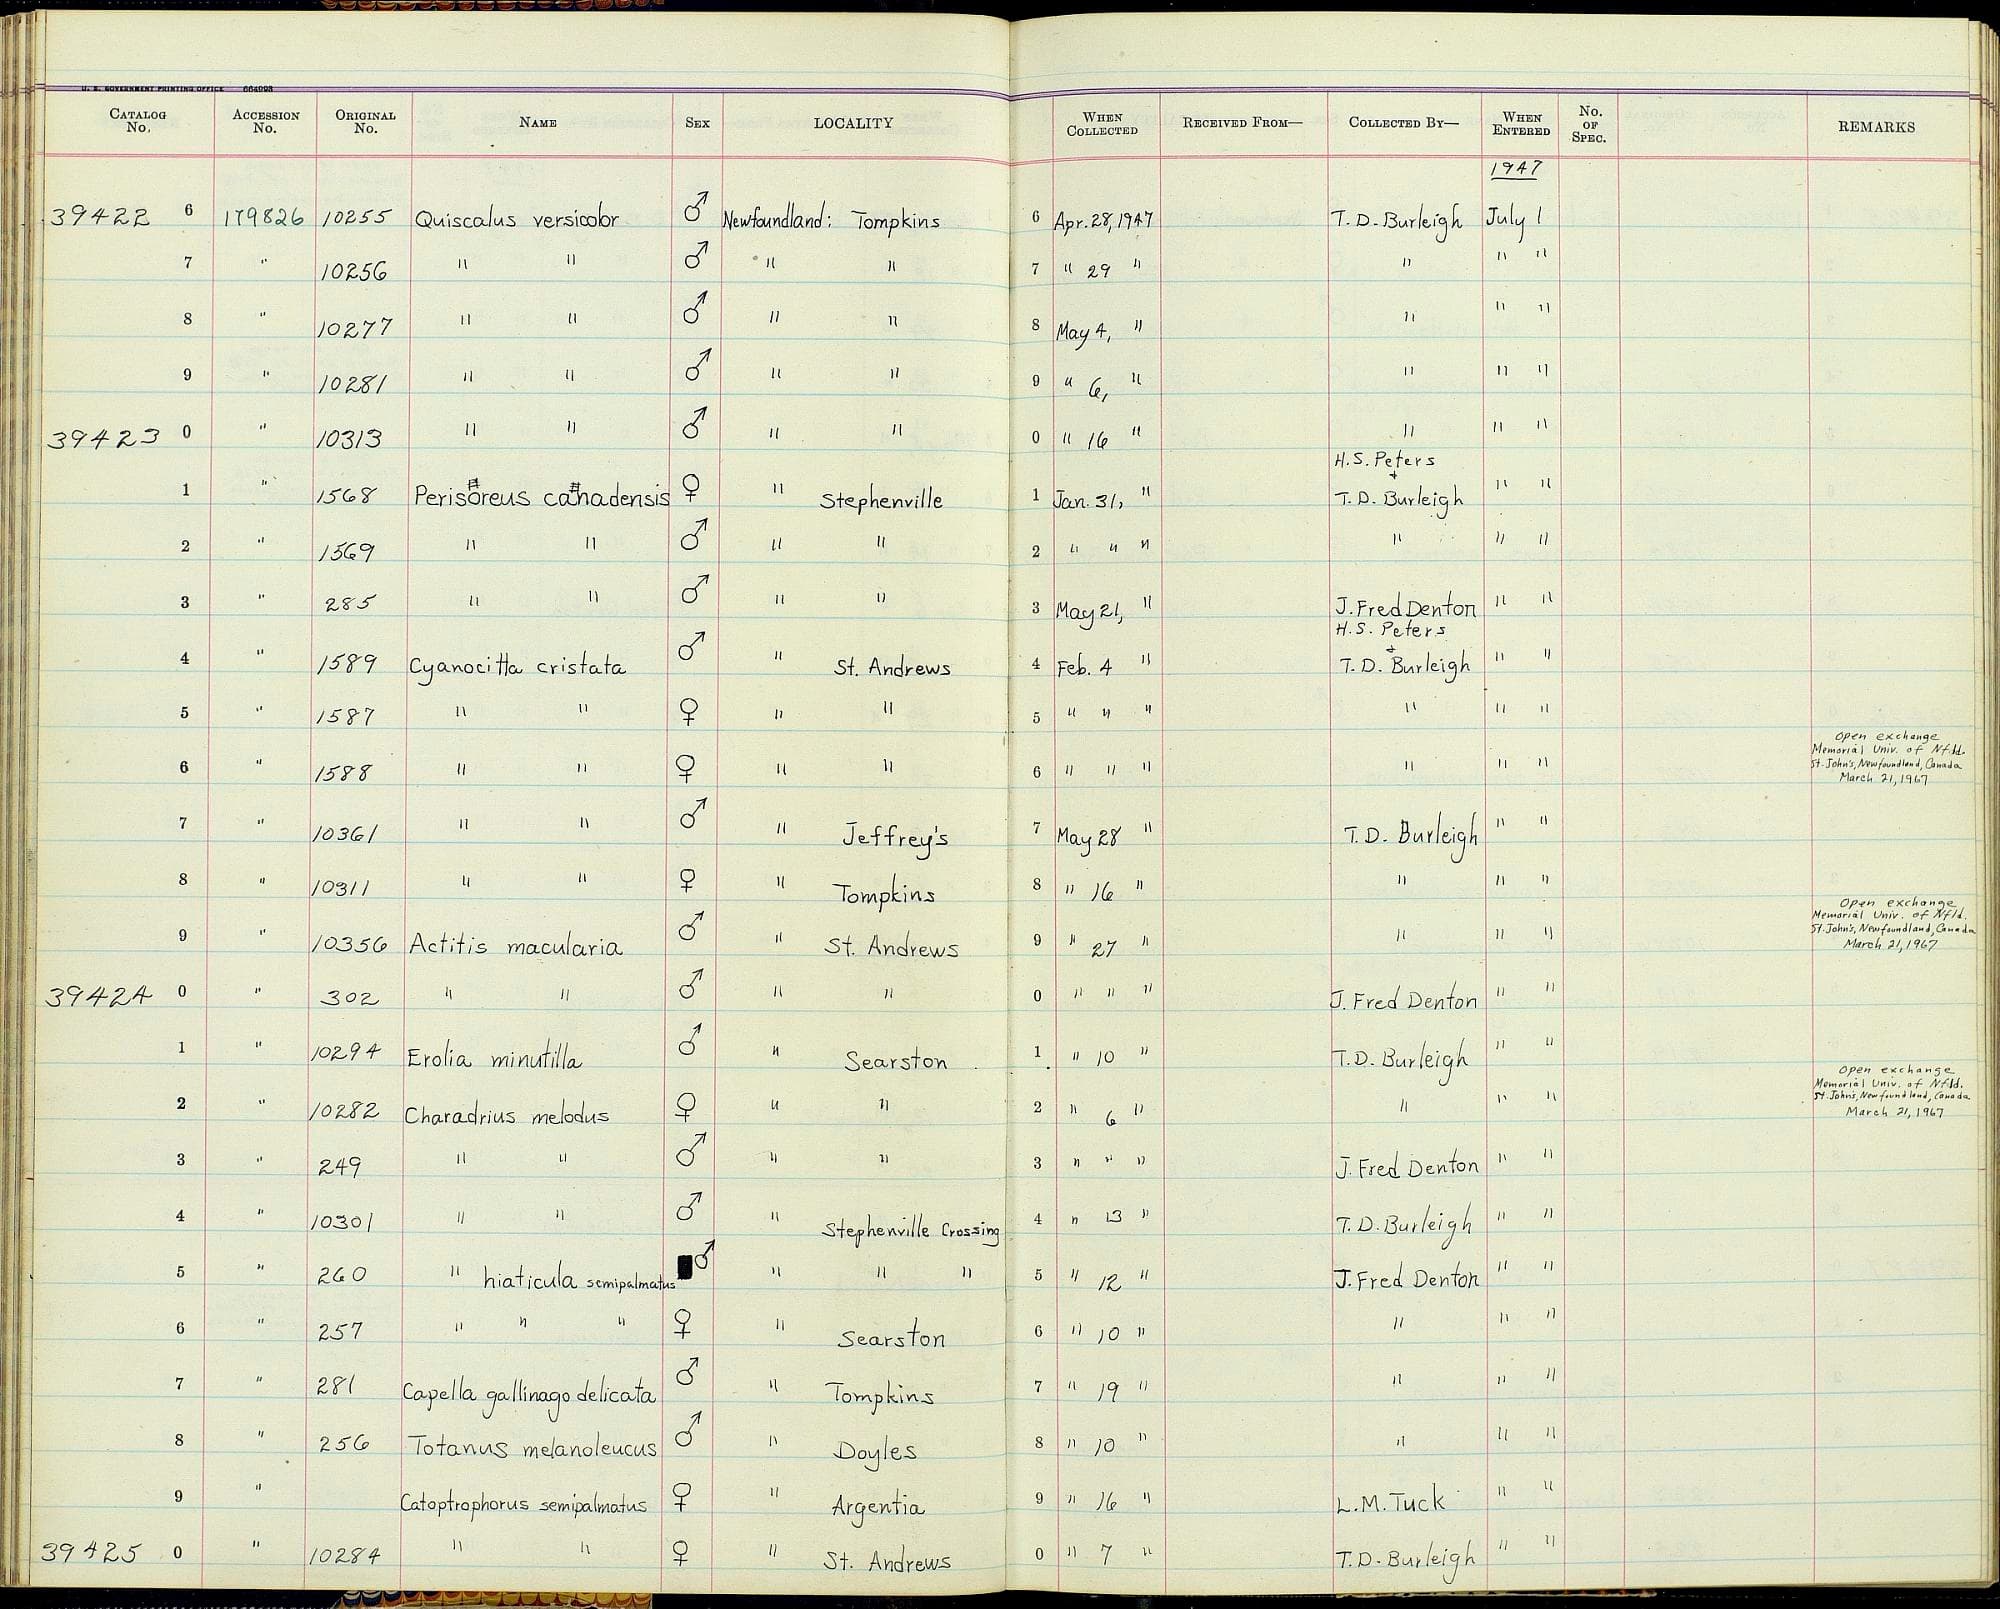 U. S. GOVERNMENT PRINTING OFFICE 664998
CATALOG No. ACCESSION No. ORIGINAL No. NAME SEX LOCALITY WHEN COLLECTED RECEIVED FROM— COLLECTED BY— WHEN ENTERED No. OF SPEC. REMARKS
1947
39422 6 179826 10255 Quiscalus versicolor ♂ Newfoundland: Tompkins 6 Apr. 28, 1947 T. D. Burleigh July 1
7 " 10256 " " ♂ " " 7 " 29 " " " "
8 " 10277 " " ♂ " " 8 May 4, " " " "
9 " 10281 " " ♂ " " 9 " 6, " " " "
39423 0 " 10313 " " ♂ " " 0 " 16 " " " "
H.S. Peters
1 " 1568 Perisoreus canadensis ♀ " Stephenville 1 Jan. 31, " + T. D. Burleigh " "
2 " 1569 " " ♂ " " 2 " " " " " "
3 " 285 " " ♂ " " 3 May 21, " J. Fred Denton " "
H.S. Peters
4 " 1589 Cyanocitta cristata ♂ " St. Andrews 4 Feb. 4 " + T. D. Burleigh " "
5 " 1587 " " ♀ " " 5 " " " " " "
6 " 1588 " " ♀ " " 6 " " " " " " Open exchange
Memorial Univ. of Nfld.
St. John's, Newfoundland, Canada
March 21, 1967
7 " 10361 " " ♂ " Jeffrey's 7 May 28 " T. D. Burleigh " "
8 " 10311 " " ♀ " Tompkins 8 " 16 " " " "
9 " 10356 Actitis macularia ♂ " St. Andrews 9 " 27 " " " " Open exchange
Memorial Univ. of Nfld.
St. John's, Newfoundland, Canada
March 21, 1967
39424 0 " 302 " " ♂ " " 0 " " " J. Fred Denton " "
1 " 10294 Erolia minutilla ♂ " Searston 1 " 10 " T. D. Burleigh " "
2 " 10282 Charadrius melodus ♀ " " 2 " 6 " " " " Open exchange
Memorial Univ. of Nfld.
St. John's, Newfoundland, Canada
March 21, 1967
3 " 249 " " ♂ " " 3 " " " J. Fred Denton " "
4 " 10301 " " ♂ " Stephenville Crossing 4 " 13 " T. D. Burleigh " "
5 " 260 " hiaticula semipalmatus ♂ " " " 5 " 12 " J. Fred Denton " "
6 " 257 " " " ♀ " Searston 6 " 10 " " " "
7 " 281 Capella gallinago delicata ♂ " Tompkins 7 " 19 " " " "
8 " 256 Totanus melanoleucus ♂ " Doyles 8 " 10 " " " "
9 " Catoptrophorus semipalmatus ♀ " Argentia 9 " 16 " L. M. Tuck " "
39425 0 " 10284 " " ♀ " St. Andrews 0 " 7 " T. D. Burleigh " "